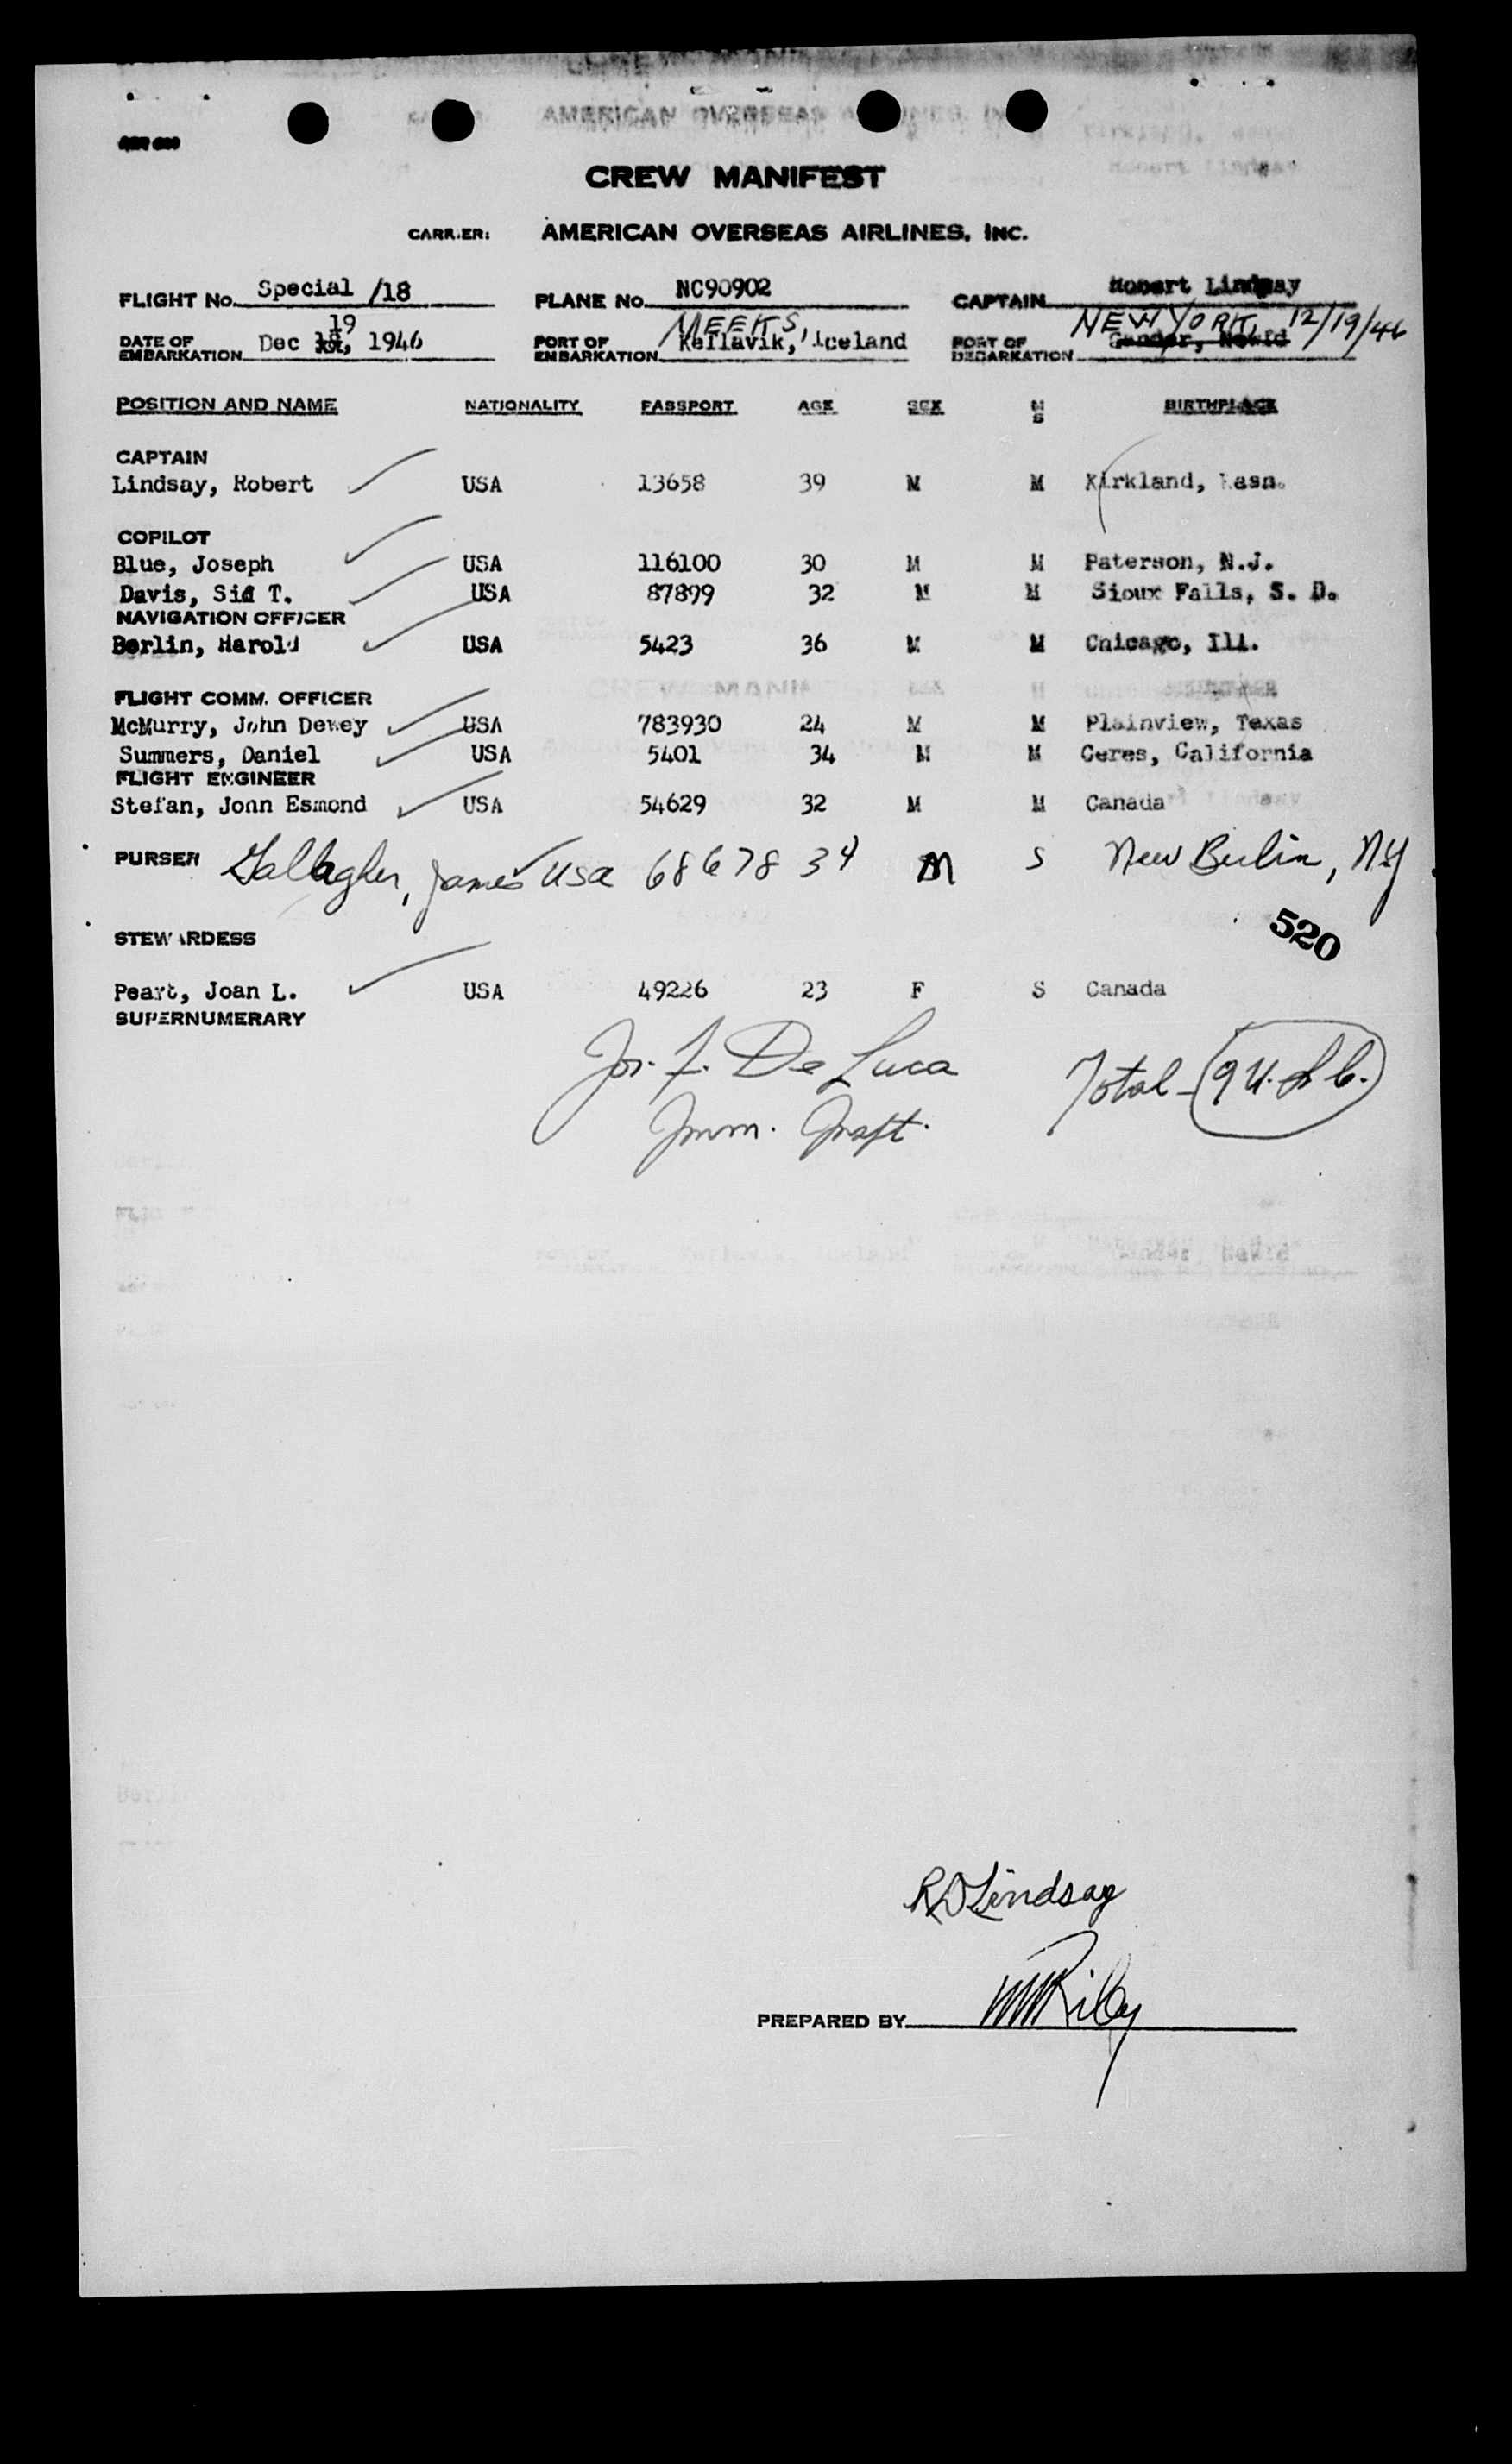 CREW MANIFEST
CARRIER: AMERICAN OVERSEAS AIRLINES, INC.
FLIGHT No. Special /18 PLANE No. NC90902 CAPTAIN Robert Lindsay
19 MEEKS, NEW YORK, 12/19/46
DATE OF EMBARKATION Dec 18, 1946 PORT OF EMBARKATION Keflavik, Iceland PORT OF DEBARKATION Gander, Newfd
POSITION AND NAME NATIONALITY PASSPORT AGE SEX M S BIRTHPLACE
CAPTAIN
Lindsay, Robert USA 13658 39 M M Kirkland, Wasn.
COPILOT
Blue, Joseph USA 116100 30 M M Paterson, N.J.
Davis, Sid T. USA 87899 32 M M Sioux Falls, S. D.
NAVIGATION OFFICER
Berlin, Harold USA 5423 36 M M Chicago, Ill.
FLIGHT COMM. OFFICER
McMurry, John Dewey USA 783930 24 M M Plainview, Texas
Summers, Daniel USA 5401 34 M M Ceres, California
FLIGHT ENGINEER
Stefan, John Esmond USA 54629 32 M M Canada
PURSER Gallagher, James USA 68678 34 M S New Berlin, NY
520
STEWARDESS
Peart, Joan L. USA 49226 23 F S Canada
SUPERNUMERARY
Jos. F. De Luca
Total - 9 U.S.C.
Imm. Inspt.
RDLindsay
PREPARED BY Riley